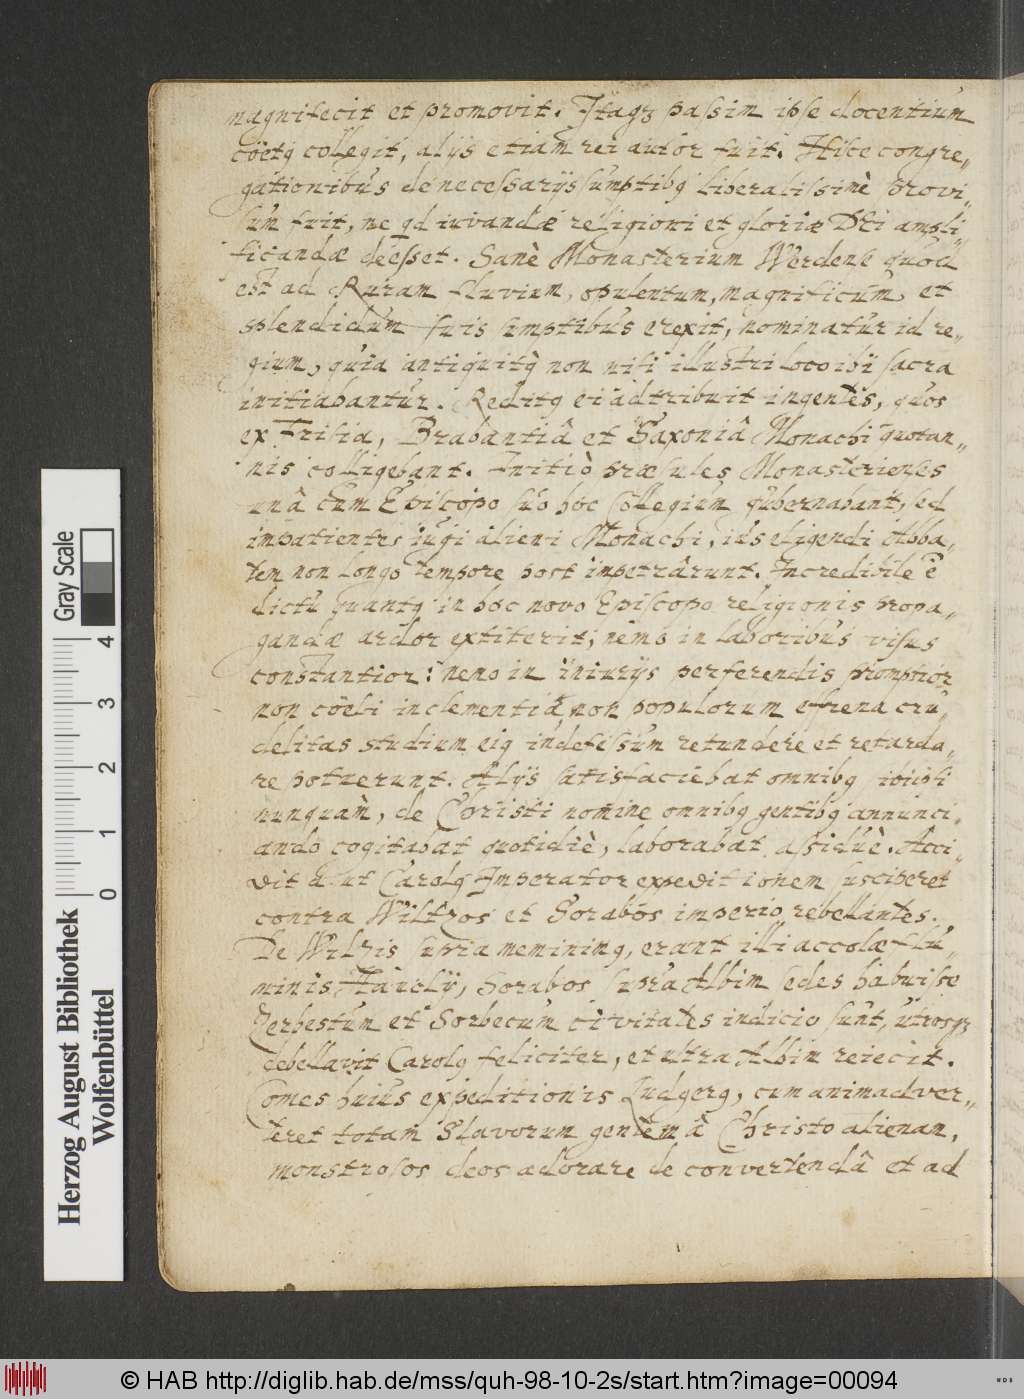 magnifecit et promovit. Itaqz passim ipse docentium
cöetq collegit, alijs etiam rei autor fuit. Hisce congre„
gationibus de necessarijs sumptibq liberalissimè provi„
sum fuit, ne qd iuvandæ religioni et gloriæ DEi ampli„
ficandæ deesset. Sanè Monasterium Werdene quod
est ad Ruram fluvium, opulentum, magnificum et
splendidum suis sumptibus erexit, nominatur id re„
gium, quia antiquitq non nisi illustri loco ibi sacra
initiabantur. Reditq ei adtribuit ingentes, quos
ex Frisia, Brabantiâ et Saxoniâ Monachi quotan„
nis colligebant. Initiò præsules Monasterienses
unâ cum Episcopo suo hoc Collegium gubernabant, sed
impatientes iugi alieni Monachi, ius eligendi Abba„
tem non longo tempore post impetrârunt. Incredibile ē
dictu quantq in hoc novo Episcopo religionis propa„
gandæ ardor extiterit, nemo in laboribus visus
constantior: nemo in iniurijs perferendis promptior
non cöeli inclementia, non populorum efrena cru„
delitas studium eiq indefessum retundere et retarda„
re potuerunt. Alijs satisfaciebat omnibq sibi ipsi
nunquam, de Christi nomine omnibq gentibq annunci„
ando cogitabat quotidiè, laborabat assiduè. Acci„
dit ut Carolq Imperator expeditionem susciperet
contra Wiltzos et Sorabos imperio rebellantes.
De Wilzis supra meminimq, erant illi accolæ flu„
minis Havelij, Sorabos supra Albim sedes habuisse
Zerbestum et Sorbecum civitates indicio sunt, utrosqz
debellavit Carolq feliciter, et ultra Albim reiecit.
Comes huius expeditionis Ludgerq, cum animadver„
teret totam Slavorum gentem â Christo alienam,
monstrosos deos adorare de convertendâ et ad
Gray Scale
0 1 2 3 4
Herzog August Bibliothek
Wolfenbüttel
© HAB http://diglib.hab.de/mss/quh-98-10-2s/start.htm?image=00094